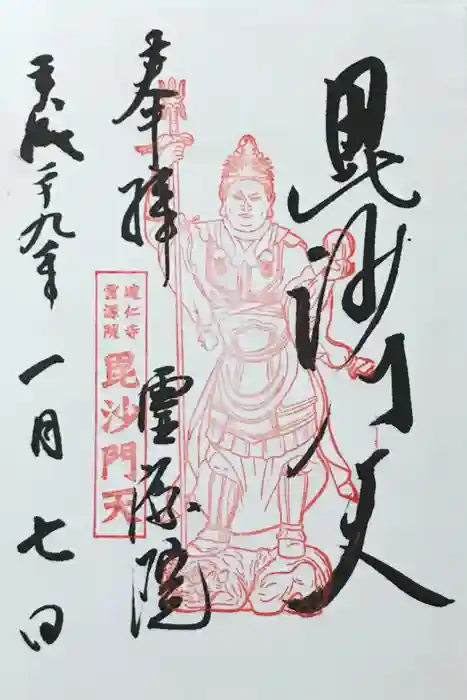 毘沙門天
奉拝
靈源院
建仁寺
霊源院
毘沙門天
平成二十九年
一月
七日